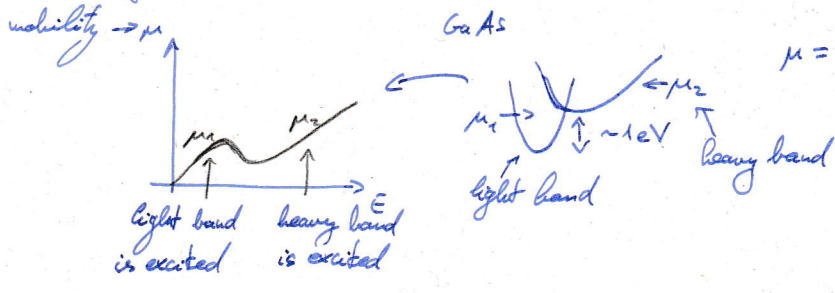 mobility → μ
GaAs
μ =
μ1
μ2
E
light band
is excited
heavy band
is excited
μ1 →
← μ2
~1eV
light band
heavy band